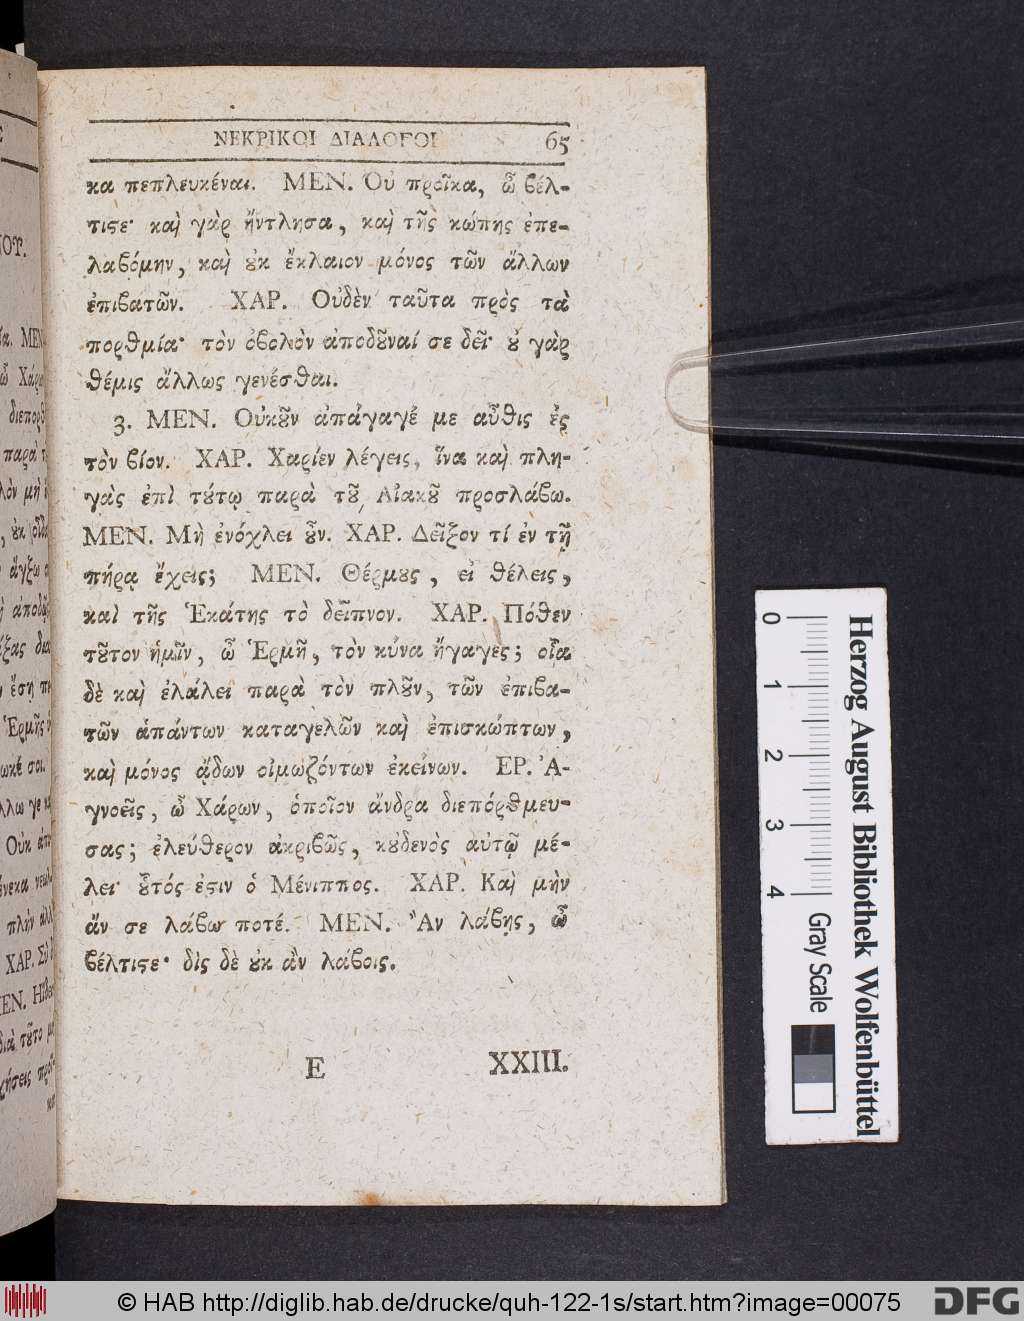 ΝΕΚΡΙΚΟΙ ΔΙΑΛΟΓΟΙ 65
κα πεπλευκέναι. ΜΕΝ. Οὐ προῖκα, ὦ βέλ-
τιϛε· καὶ γὰρ ἤντλησα, καὶ τῆς κώπης ἐπε-
λαβόμην, καὶ ȣ̓κ ἔκλαιον μόνος τῶν ἄλλων
ἐπιβατῶν. ΧΑΡ. Οὐδὲν ταῦτα πρὸς τὰ
πορθμία· τὸν ὀβολὸν ἀποδȣ͂ναί σε δεῖ· ȣ̓ γὰρ
θέμις ἄλλως γενέσθαι.
3. ΜΕΝ. Οὐκȣ͂ν ἀπάγαγέ με αὖθις ἐς
τὸν βίον. ΧΑΡ. Χαρίεν λέγεις, ἵνα καὶ πλη-
γὰς ἐπὶ τȣ́τῳ παρὰ τȣ͂ Αἰακȣ͂ προσλάβω.
ΜΕΝ. Μὴ ἐνόχλει ȣ̓͂ν. ΧΑΡ. Δεῖξον τί ἐν τῇ
πήρᾳ ἔχεις; ΜΕΝ. Θέρμȣς, εἰ θέλεις,
καὶ τῆς Ἑκάτης τὸ δεῖπνον. ΧΑΡ. Πόθεν
τȣ͂τον ἡμῖν, ὦ Ἑρμῆ, τὸν κύνα ἤγαγες; οἷα
δὲ καὶ ἐλάλει παρὰ τὸν πλȣ͂ν, τῶν ἐπιβα-
τῶν ἁπάντων καταγελῶν καὶ ἐπισκώπτων,
καὶ μόνος ᾄδων οἰμωζόντων ἐκείνων. ΕΡ. Ἀ-
γνοεῖς, ὦ Χάρων, ὁποῖον ἄνδρα διεπόρθμευ-
σας; ἐλεύθερον ἀκριβῶς, κȣ̓δενὸς αὐτῷ μέ-
λει· ȣ̔͂τός ἐϛιν ὁ Μένιππος. ΧΑΡ. Καὶ μὴν
ἄν σε λάβω ποτέ. ΜΕΝ. Ἂν λάβῃς, ὦ
βέλτιϛε· δὶς δὲ ȣ̓κ ἂν λάβοις.
E XXIII.
0 1 2 3 4
Gray Scale
Herzog August Bibliothek Wolfenbüttel
© HAB http://diglib.hab.de/drucke/quh-122-1s/start.htm?image=00075
DFG